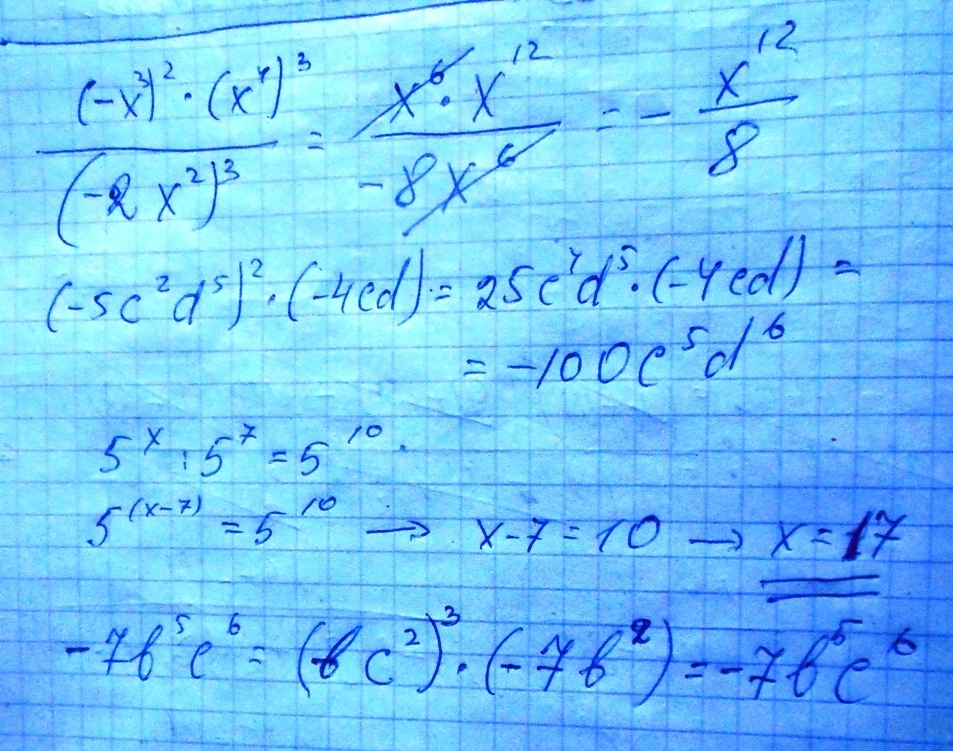 ((-x³)² · (x⁴)³) / (-2x²)³ = (x⁶ · x¹²) / (-8x⁶) = - x¹² / 8
(-5c²d⁵)² · (-4cd) = 25c⁴d⁵ · (-4cd) =
= -100c⁵d⁶
5ˣ : 5⁷ = 5¹⁰.
5⁽ˣ⁻⁷⁾ = 5¹⁰ → x-7=10 → x=17
-7b⁵c⁶ = (bc²)³ · (-7b²) = -7b⁵c⁶